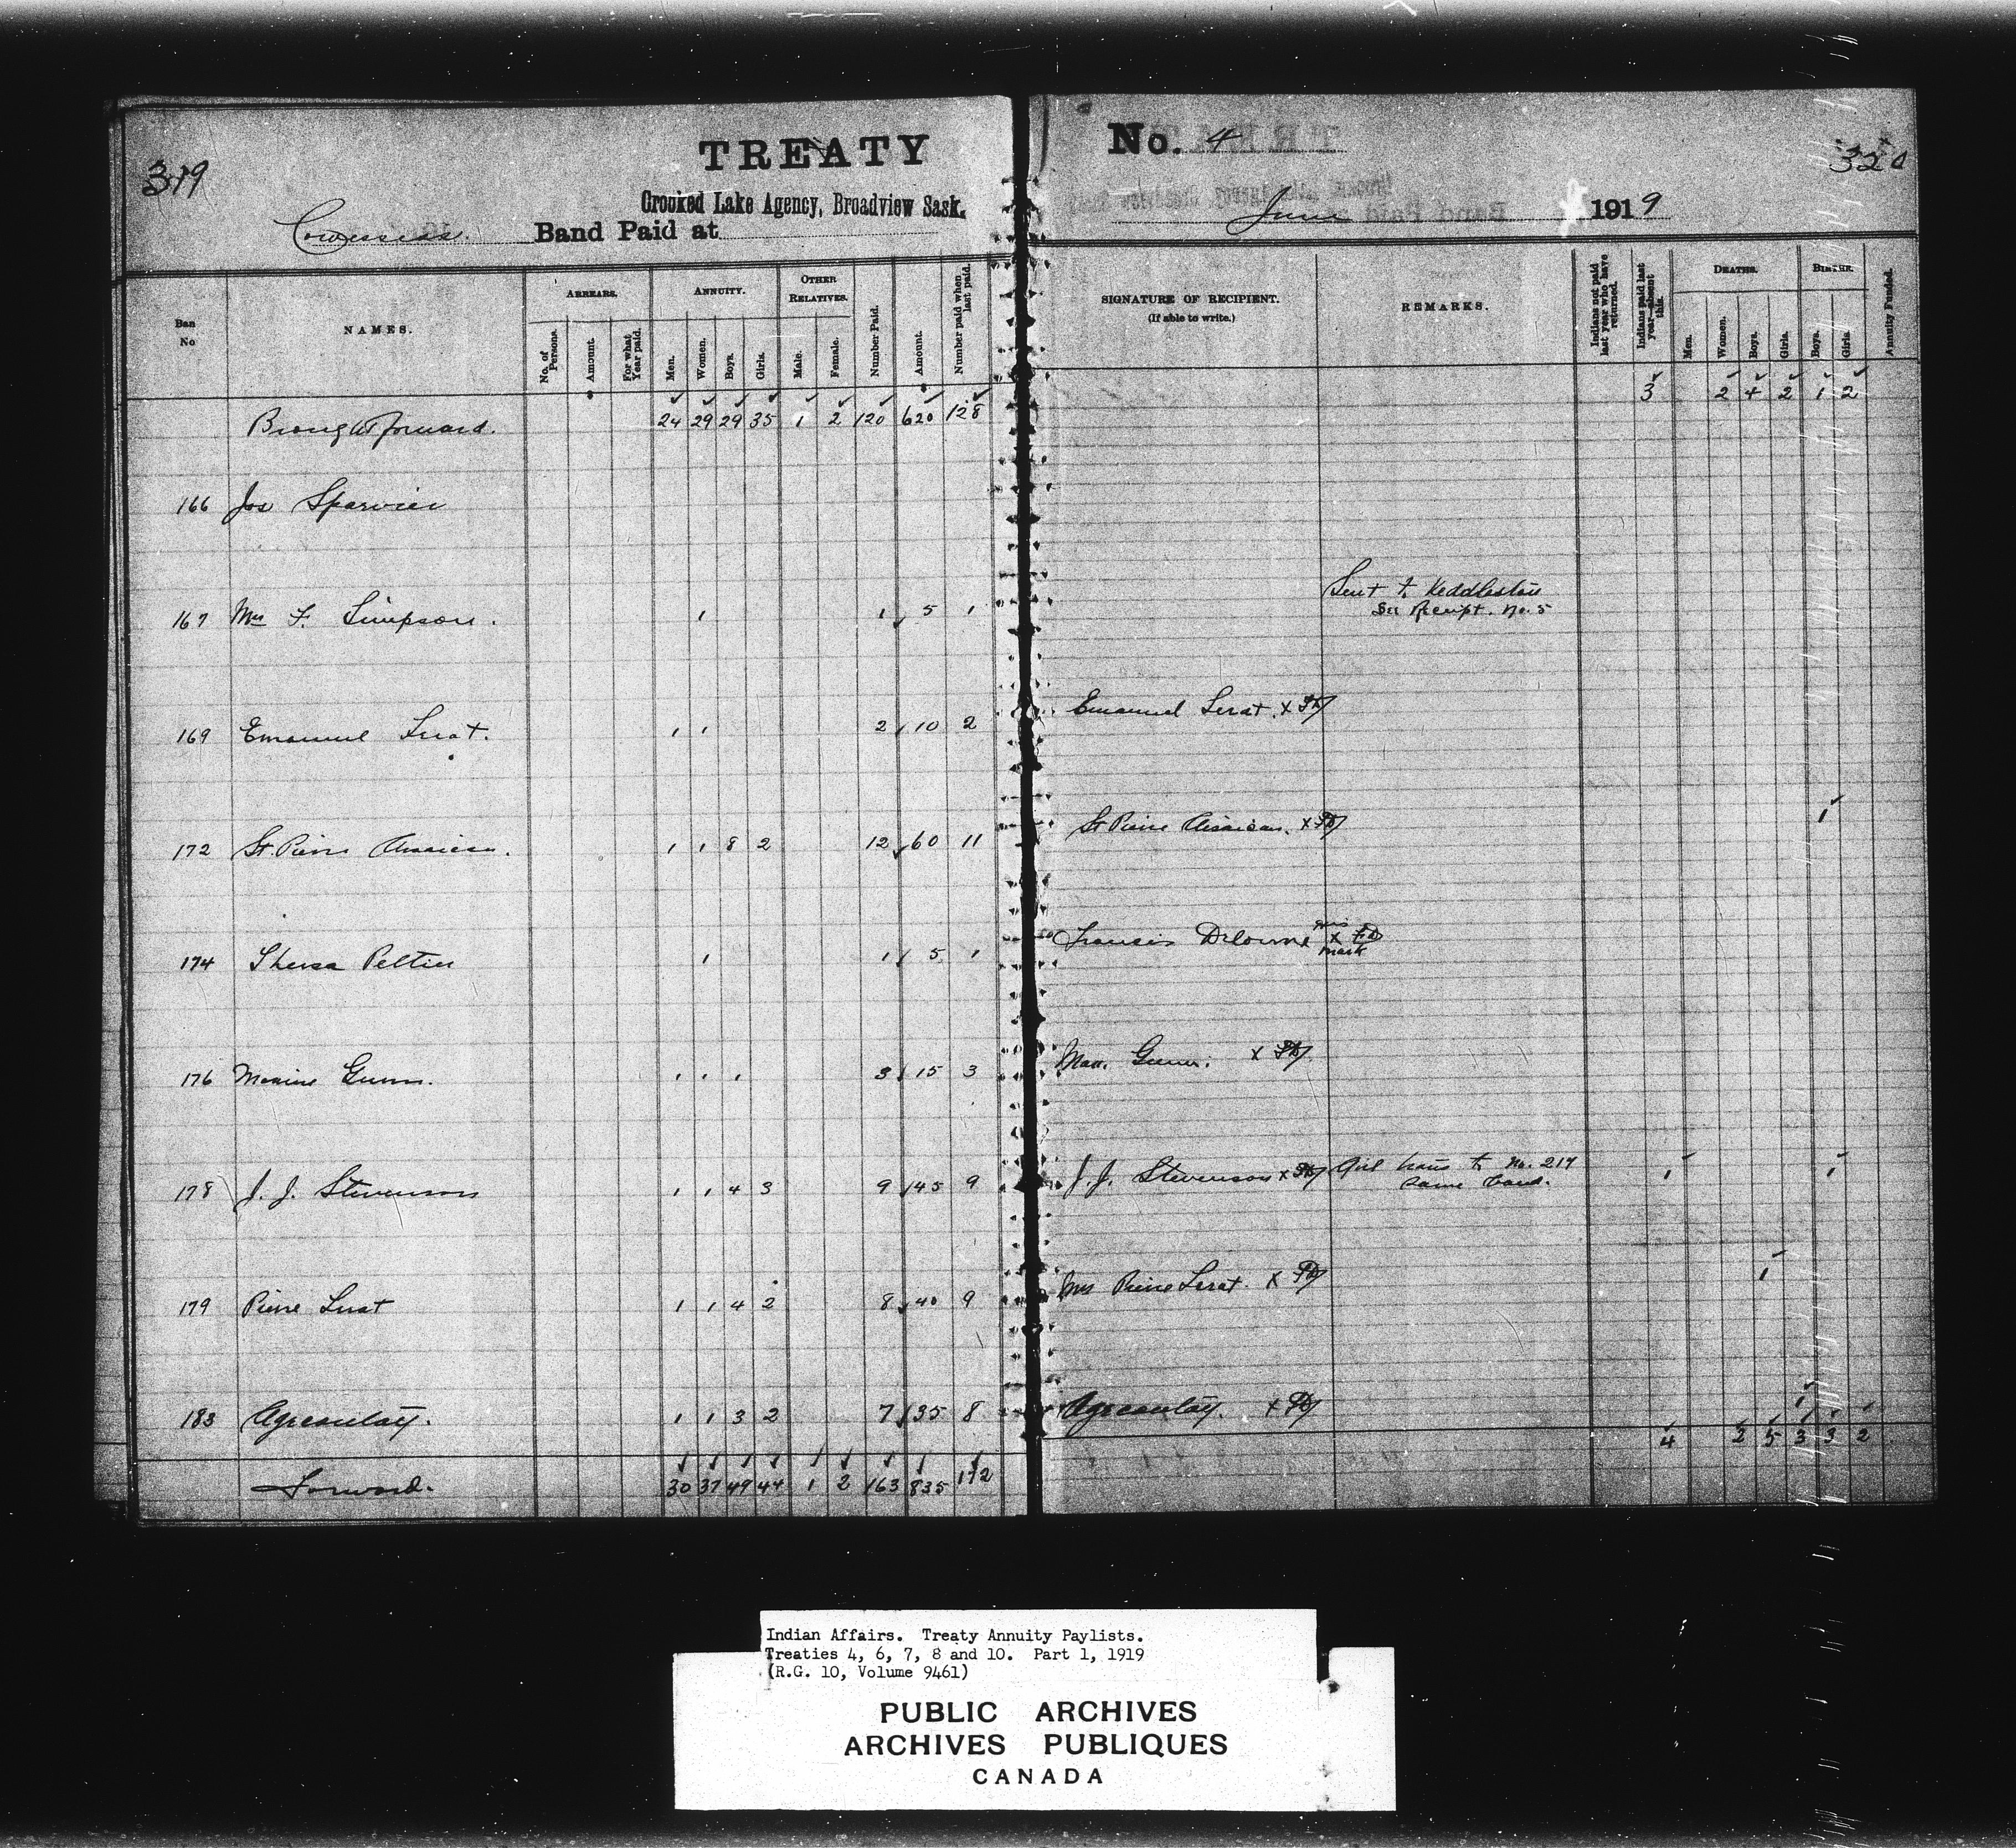 TREATY
No. 4
319
320
Crooked Lake Agency, Broadview Sask.
Cowessess. Band Paid at
June 1919
Ban No
NAMES.
ARREARS.
No. of Persons.
Amount.
For what Year paid.
ANNUITY.
Men.
Women.
Boys
Girls.
OTHER RELATIVES.
Male.
Female.
Number Paid.
Amount.
Number paid when last paid.
SIGNATURE OF RECIPIENT.
(If able to write.)
REMARKS.
Indians not paid last year who have returned.
Indians paid last year—absent this.
DEATHS.
Men.
Women.
Boys.
Girls.
BIRTHS.
Boys.
Girls.
Annuity Funded.
Brought forward. 24 29 29 35 1 2 120 620 128 3 2 4 2 1 2
166 Jos Sparvier
167 Mrs F. Simpson. 1 1 5 1 Sent to Keddleston
See Receipt. No. 5
169 Emanuel Lerat. 1 1 2 10 2 Emanuel Lerat. x
172 St. Pierre 1 1 8 2 12 60 11 St Pierre x 1
174 Theresa Peltier 1 1 5 1 Francis Delorme his x mark
176 Maxime Gunn. 1 1 1 3 15 3 Max. Gunn. x
178 J. J. Stevenson 1 1 4 3 9 45 9 J. J. Stevenson x Girl trans to No. 217 1 1
same band.
179 Pierre Lerat 1 1 4 2 8 40 9 Mrs Pierre Lerat. x 1
183 1 1 3 2 7 35 8 x 1
Forward. 30 37 49 44 1 2 163 835 172 4 2 5 3 3 2
Indian Affairs. Treaty Annuity Paylists.
Treaties 4, 6, 7, 8 and 10. Part 1, 1919
(R.G. 10, Volume 9461)
PUBLIC ARCHIVES
ARCHIVES PUBLIQUES
CANADA